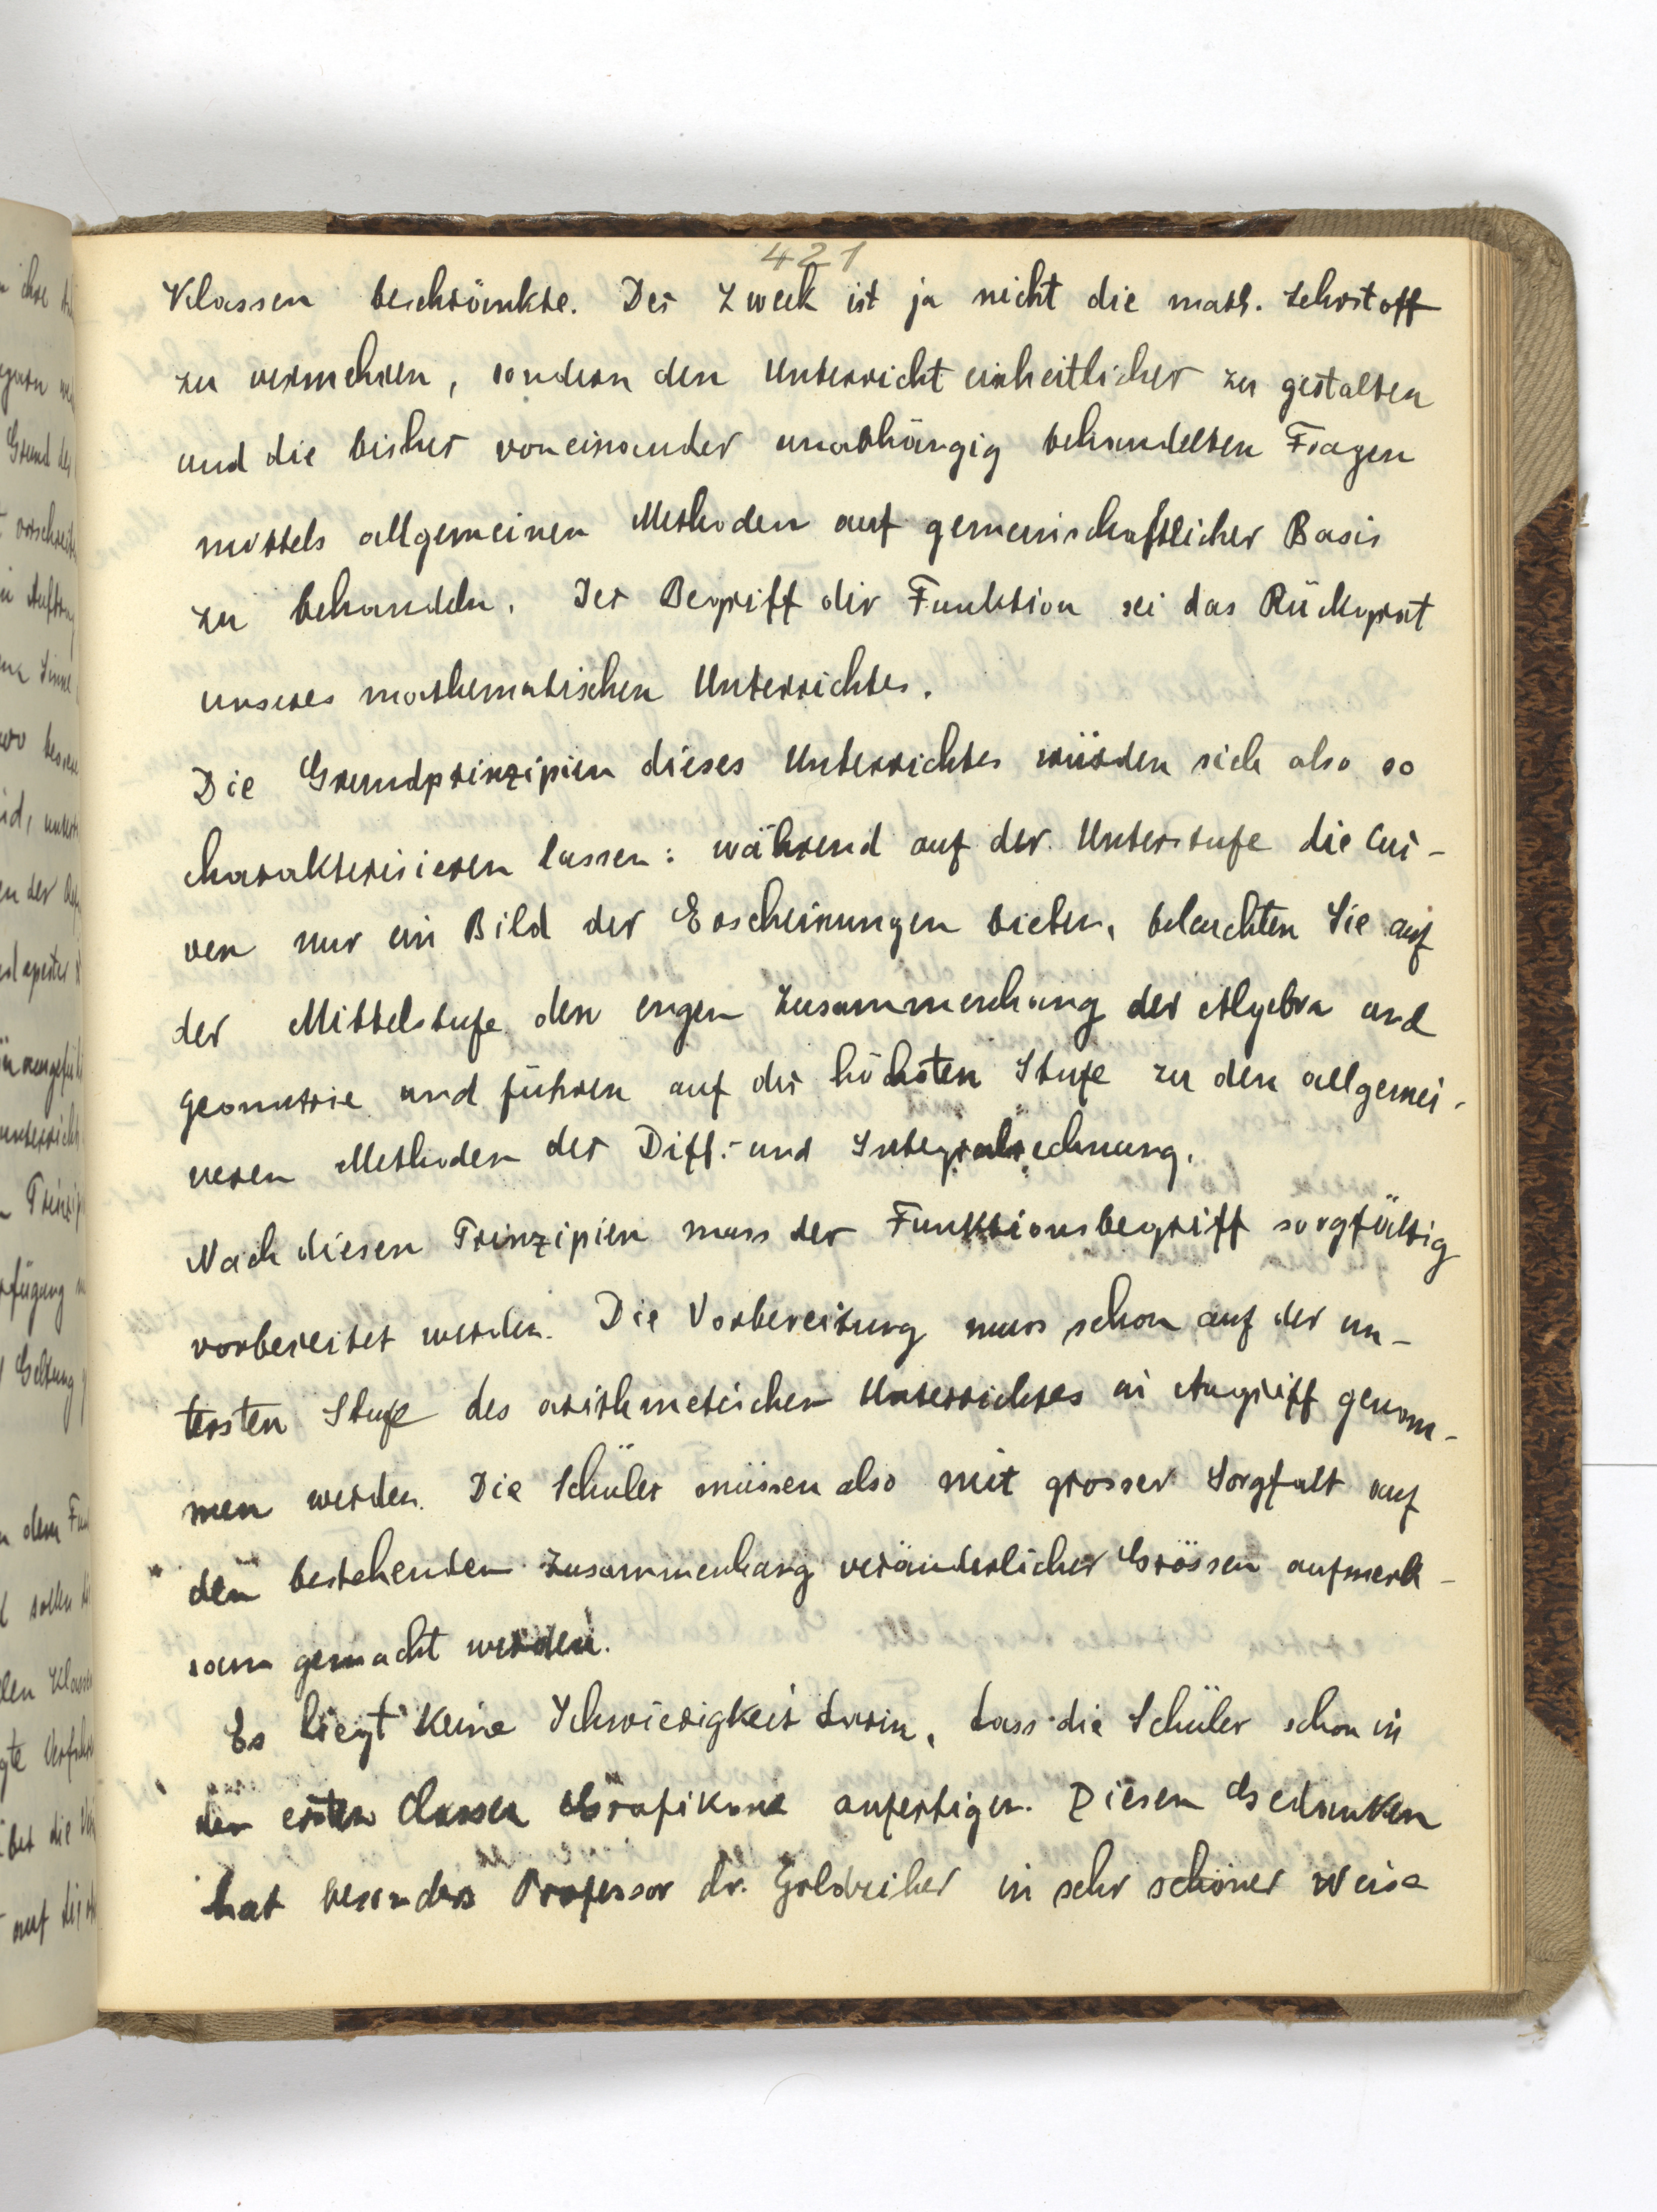 421
Klassen beschränkte. Der Zweck ist ja nicht die math. Lehrstoff
zu vermehren, sondern den Unterricht einheitlicher zu gestalten
und die bisher voneinander unabhängig behandelten Fragen
mittels allgemeinen Methoden auf gemeinschaftlicher Basis
zu behandeln. Der Begriff der Funktion sei das Rückgrat
unseres mathematischen Unterrichtes.
Die Grundprinzipien dieses Unterrichtes würden sich also so
charakterisieren lassen: während auf der Unterstufe die Cur-
ven nur ein Bild der Erscheinungen bieten, beleuchten Sie auf
der Mittelstufe den engen Zusammenhang der Algebra und
Geometrie und führen auf der höchsten Stufe zu den allgemei-
neren Methoden der Diff.- und Integralrechnung.
Nach diesen Prinzipien muss der Funktionsbegriff sorgfältig
vorbereitet werden. Die Vorbereitung muss schon auf der un-
tersten Stufe des arithmetichen Unterrichtes in Angriff genom-
men werden. Die Schüler müssen also mit grosser Sorgfalt auf
den bestehenden Zusammenhang veränderlicher Grössen aufmerk-
sam gemacht werden.
Es liegt keine Schwierigkeit darin, dass die Schüler schon in
den ersten Classen Grafikone anfertigen. Diesen Gedanken
hat besonders Professor dr. Goldziher in sehr schöner Weise